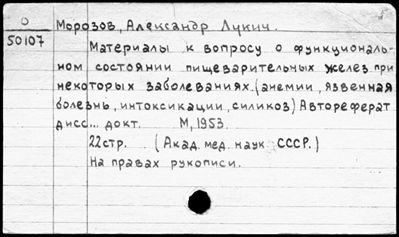 О
50107
Морозов, Александр Лукич.
Материалы к вопросу о функциональ-
ном состоянии пищеварительных желез при
некоторых заболеваниях. (анемии, язвенная
болезнь, интоксикации, силикоз) Автореферат
дисс... докт. М, 1953.
22стр. (Акад. мед. наук СССР.)
На правах рукописи.